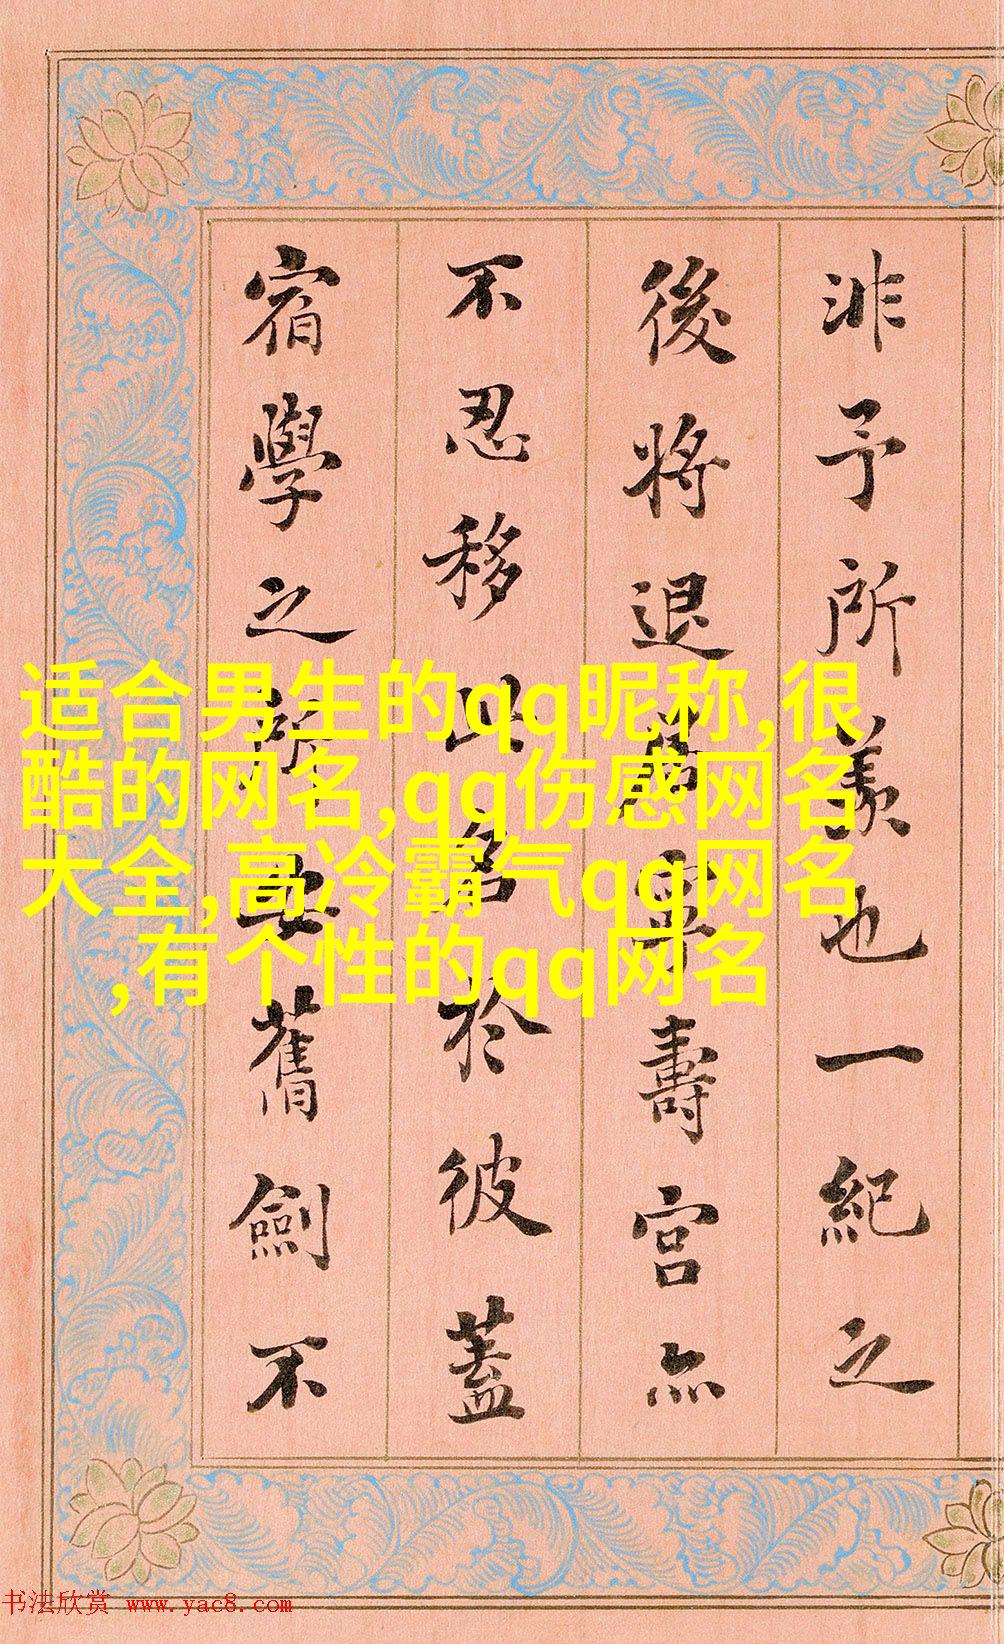 非予所羨也一紀之
後將退居寧壽宮亦
不忍移此名於彼蓋
宿學之所安舊劍不
适合男生的qq昵称,很
酷的网名,qq伤感网名
大全,高冷霸气qq网名
,有个性的qq网名
书法欣赏 www.yac8.com